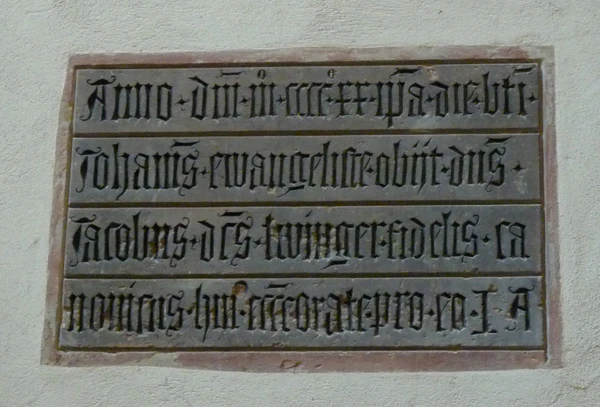 Anno · dm̄ · m̊ · cccc° · xx · ip̄a · die · bt̄i ·
Johanīs · ewangeliste · obijt · dn̄s ·
Jacobus · dc̄s · twinger · fidelis · ca
nonicus · hui · orate · pro · eo · I A